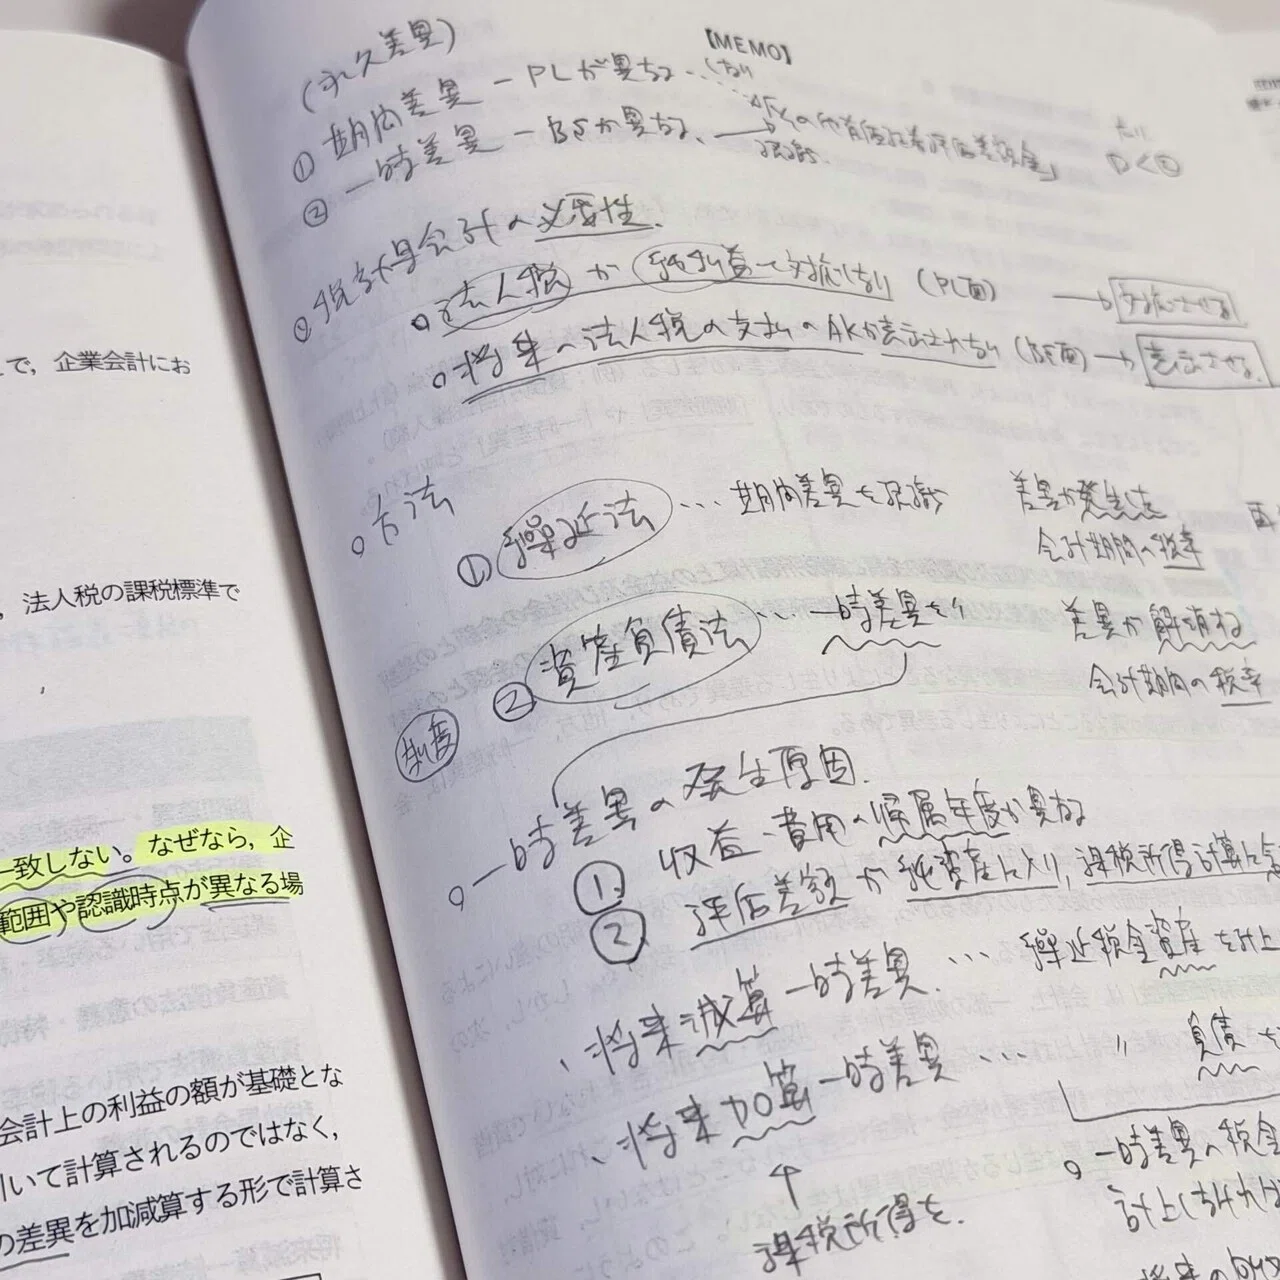 で、企業会計にお
法人税の課税標準で
一致しない。なぜなら，企
範囲や認識時点が異なる場
会計上の利益の額が基礎とな
いて計算されるのではなく，
の差異を加減算する形で計算さ
【MEMO】
(永久差異)
① 期間差異 － PLが異なる
② 一時差異 － BSが異なる、→ 認識
「その他有価証券評価差額金」
① < ②
○ 税効果会計の必要性.
○ 法人税 が 純利益と対応しない (PL面) → 対応させる
○ 将来の法人税の支払への影響が表示されない (BS面) → 表示させる.
○ 方法
① 繰延法 … 期間差異を認識 差異が発生した
会計期間の税率
② 資産負債法 … 一時差異を〃 差異が解消する
会計期間の税率
制度
○ 一時差異の発生原因.
① 収益・費用の帰属年度が異なる
② 評価差額が純資産に入り, 課税所得計算に含
、将来減算一時差異 … 繰延税金資産を計上
、将来加算一時差異 … 〃 負債を
↑
課税所得を.
○ 一時差異の税金
計上しなければ
将来の